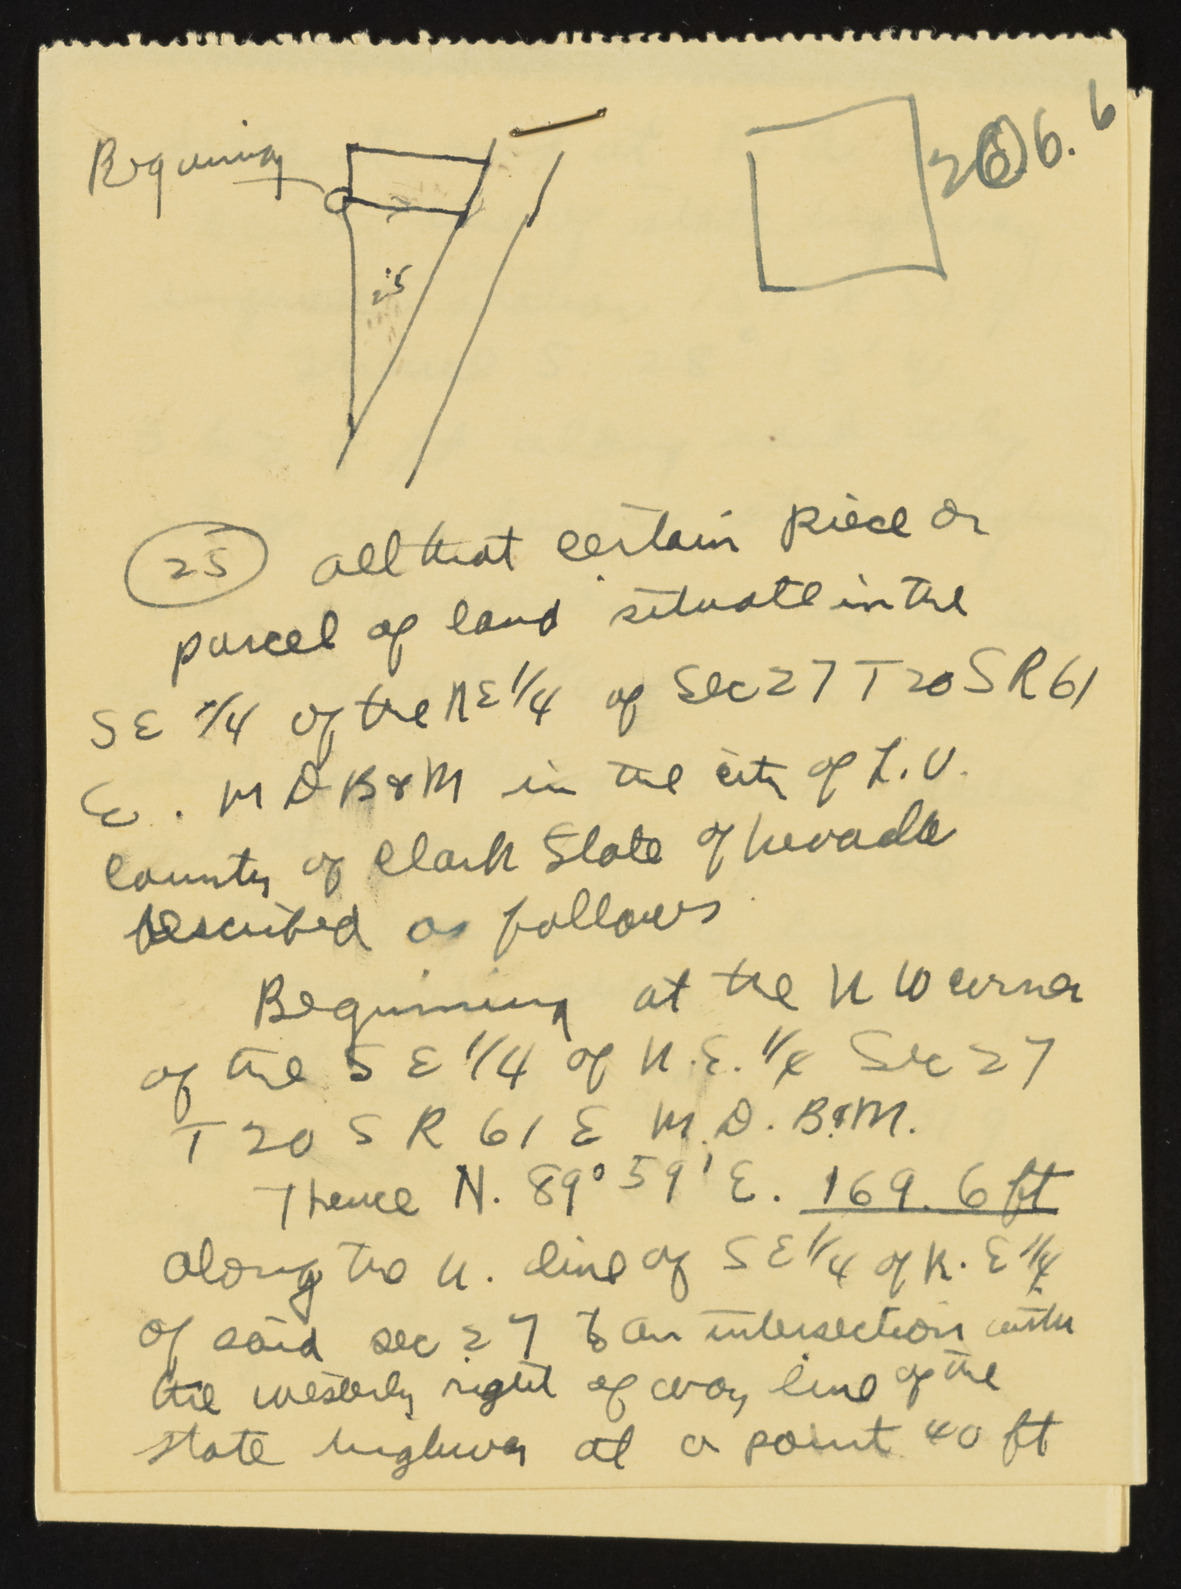 Beginning
266.6
25
25 all that certain piece or
parcel of land situate in the
SE 1/4 of the NE 1/4 of Sec 27 T 20 S R 61
E. M D B & M in the city of L.V.
County of Clark State of Nevada
described as follows
Beginning at the N W corner
of the S E 1/4 of N.E. 1/4 Sec 27
T 20 S R 61 E M.D.B.&M.
Thence N. 89° 59' E. 169.6 ft
along the N. line of S E 1/4 of N.E 1/4
of said sec 27 to an intersection with
the westerly right of way line of the
state highway at a point 40 ft